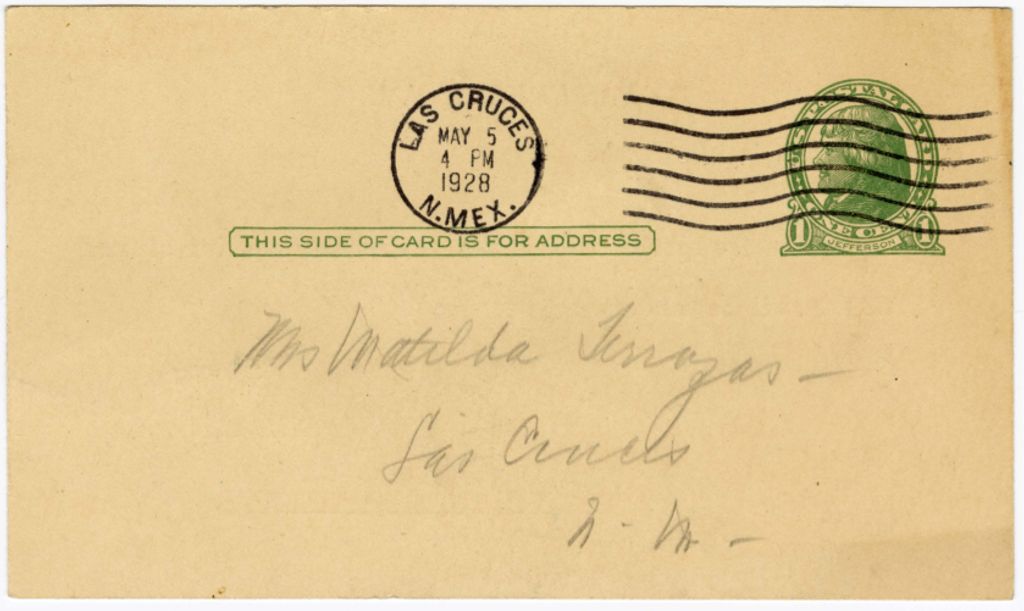 LAS CRUCES
MAY 5
4 PM
1928
N. MEX.
U.S. POSTAL CARD
1 CENT 1
JEFFERSON
THIS SIDE OF CARD IS FOR ADDRESS
Mrs Matilda Terrazas –
Las Cruces
N. M. –